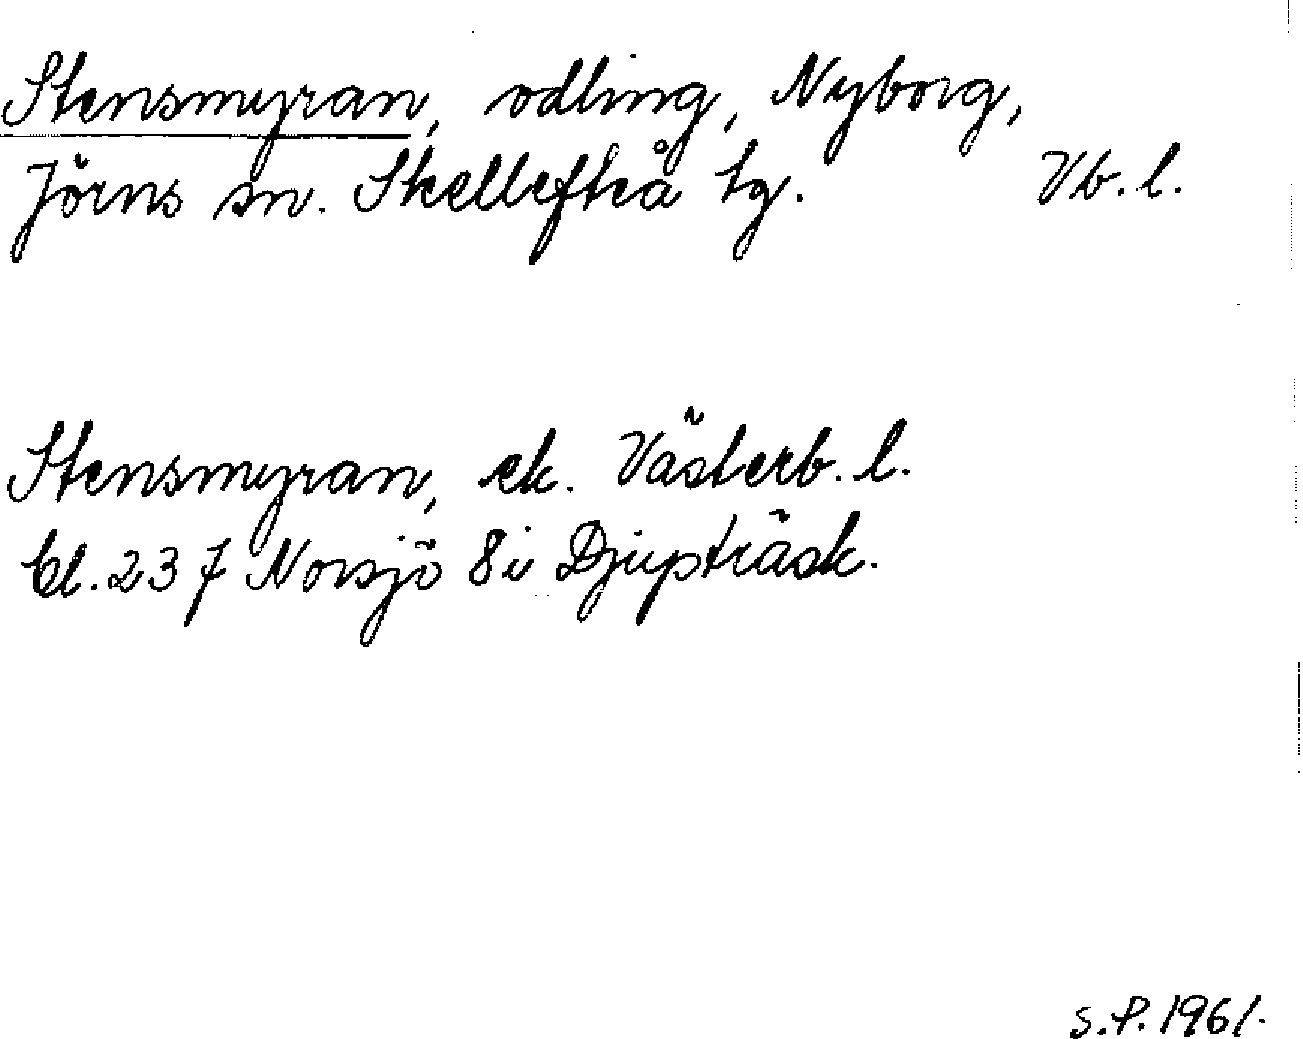 Stensmyran, odling, Nyborg,
Jörns sn. Skellefteå tg. Vb.l.
Stensmyran, ek. Västerb. l.
Bl. 237 Norsjö 8i Djupträsk.
S.P. 1961.